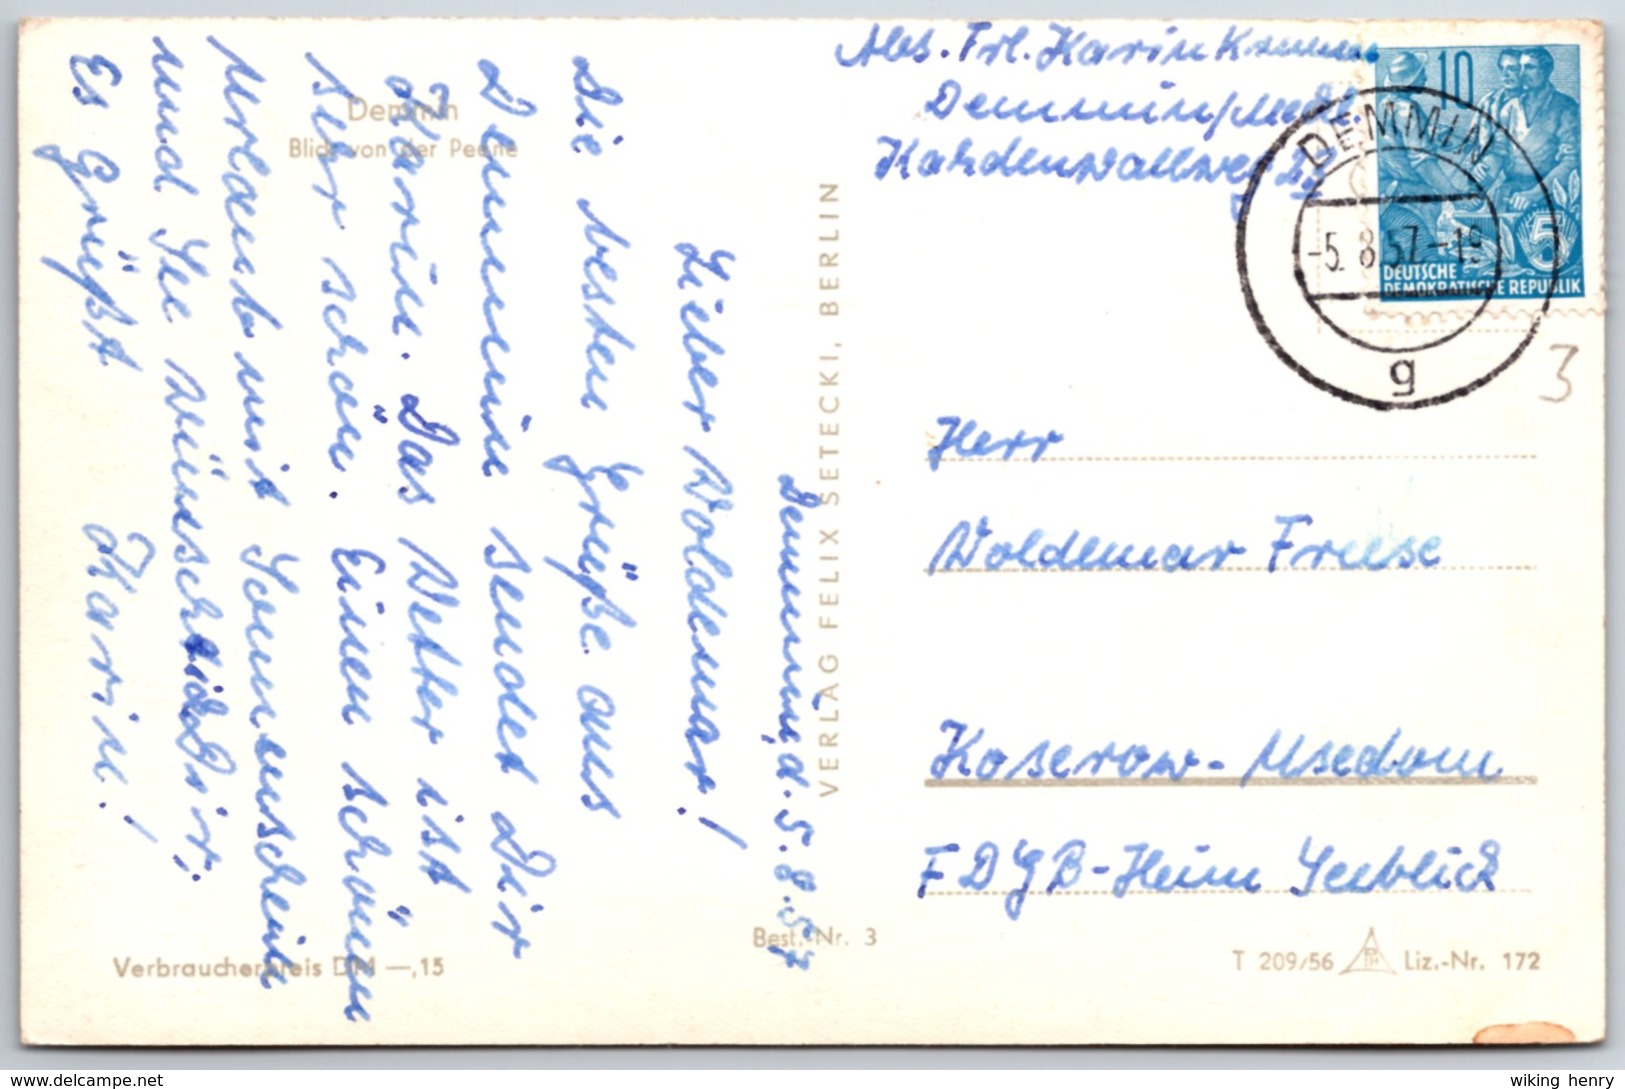 Demmin
Blick von der Peene
Demmin, d. 5.8.57
Lieber Woldemar!
Die besten Grüße aus
Demmin sendet Dir
Karin. Das Wetter ist
sehr schön. Einen schönen
Urlaub mit Sonnenschein
und See wünscht Dir,
Es Grüßt Karin!
Verbraucherpreis DM —,15
Best.-Nr. 3
VERLAG FELIX SETECKI, BERLIN
Abs. Frl. Karin
Demmin/Meckl.
DEMMIN
-5. 8.57.-19
g
10
5
DEUTSCHE
DEMOKRATISCHE REPUBLIK
3
Herr
Woldemar Freese
Koserow-Usedom
FDGB-Heim Seeblick
T 209/56 Liz.-Nr. 172
wiking_henry